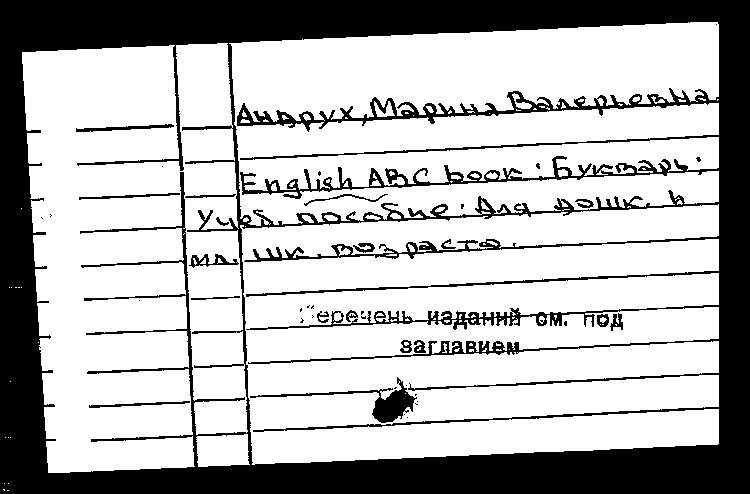 Андрух, Марина Валерьевна.
English ABC book : Букварь ;
Учеб. пособие : Для дошк. и
мл. шк. возраста.
Перечень изданий см. под
заглавием